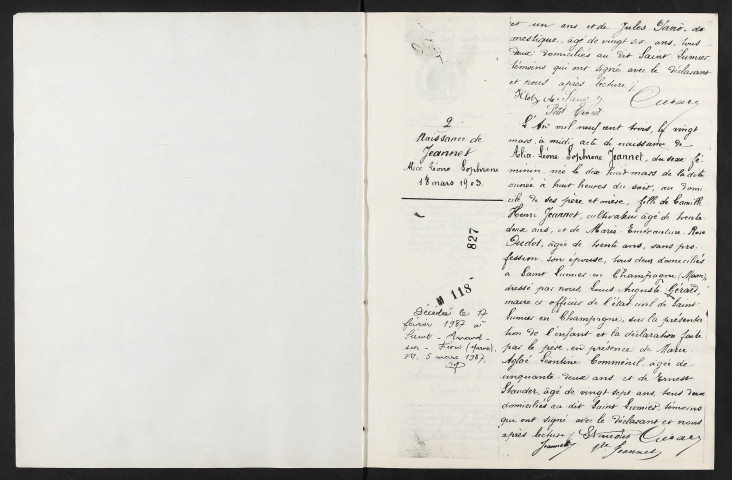 et un ans et de Jules Sanō, do
mestique, âgé de vingt six ans, tous
deux domiciliés au dit Saint Lumier
témoins qui ont signé avec le déclarant
et nous après lecture
2
Naissance de
Jeannet
Alice Léone Sophrone
18 mars 1903.
827
M 118
Décédée le 17
février 1987 à
Saint-Amand-
sur-Fion (Marne).
5 mars 1987.
L'An mil neuf cent trois, le vingt
mars, à midi, acte de naissance de
Léone Sophrone Jeannet, du sexe fé
minin, née le dix huit mars de la dite
année à huit heures du soir, au domi
cile de ses père et mère, fille de Camille
Henri Jeannet, cultivateur âgé de trente
deux ans, et de Marie Emérantine Rose
Oudot, âgée de trente ans, sans pro
fession, son épouse, tous deux domiciliés
à Saint Lumier en Champagne (Marne),
dressé par nous, Louis Auguste Gérard,
maire et officier de l'état civil de Saint
Lumier en Champagne, sur la présenta
tion de l'enfant et la déclaration faite
par le père, en présence de Marie
Aglaé Léontine Comménil, âgée de
cinquante deux ans et de Ernest
Stauder, âgé de vingt sept ans, tous deux
domiciliés au dit Saint Lumier, témoins
qui ont signé avec le déclarant et nous
après lecture
Jeannet Stauder
Jeannet